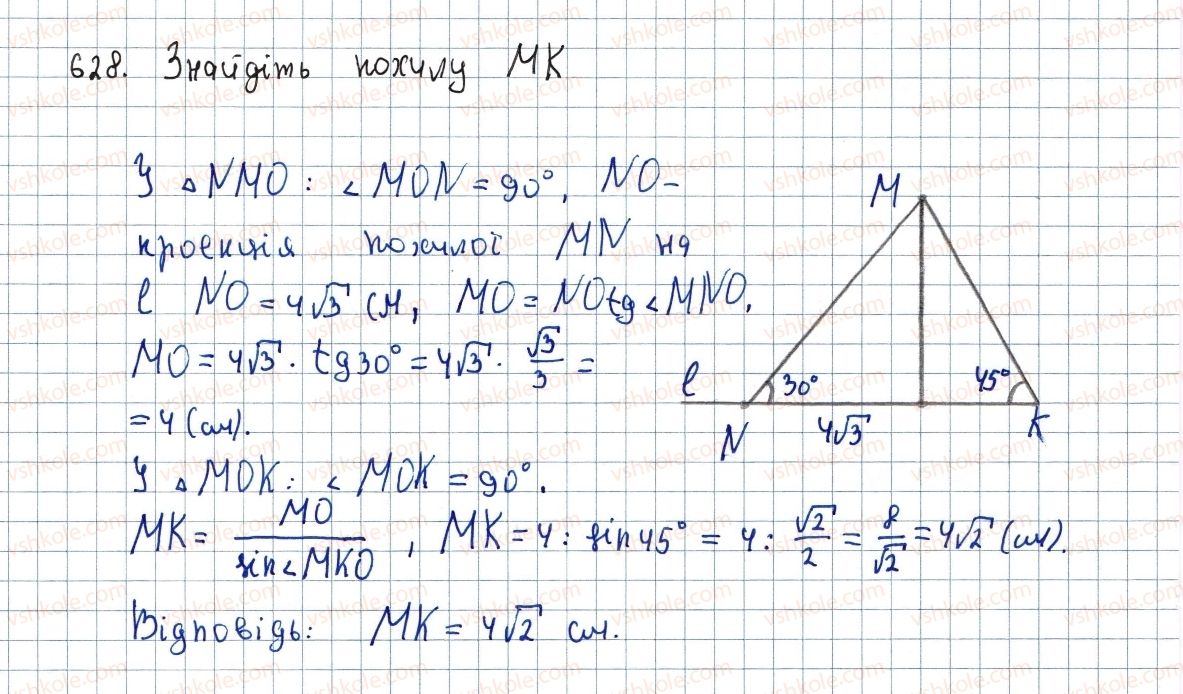 628. Знайдіть похилу МК
У △NMO: ∠MON = 90°, NO –
проекція похилої MN на
l NO = 4√3 см, MO = NO tg∠MNO,
MO = 4√3 · tg30° = 4√3 · √3/3 =
= 4 (см).
У △MOK: ∠MOK = 90°.
MK = MO/sin∠MKO, MK = 4 : sin45° = 4 : √2/2 = 8/√2 = 4√2 (см).
Відповідь: MK = 4√2 см.
M
l 30° 45°
N 4√3 K
vshkole.com